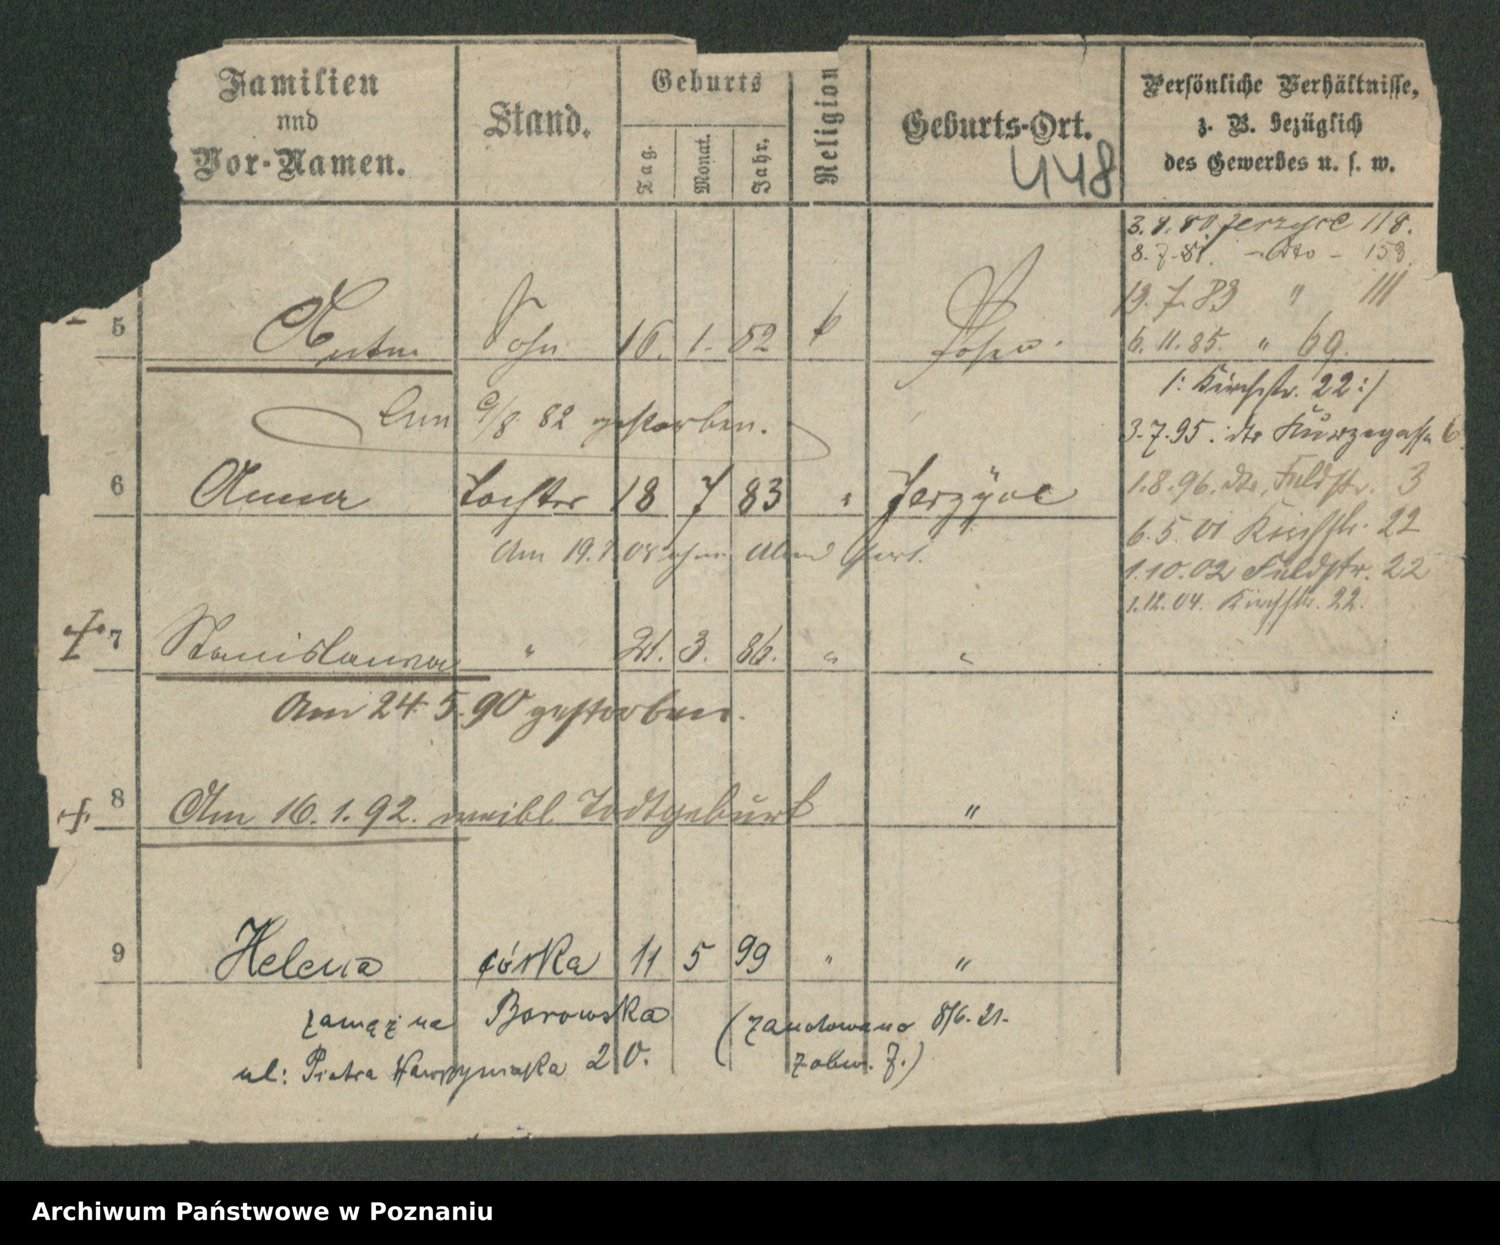 Familien
und
Vor-Namen.
Stand.
Geburts
Tag.
Monat.
Jahr.
Religion
Geburts-Ort.
448
Persönliche Verhältnisse,
z. B. bezüglich
des Gewerbes u. s. w.
3.9.80 Jerzyce 118.
8.7.81. - dto - 153.
19.7.83 " 111
6.11.85. " 69.
/: Kirchstr. 22 :/
3.7.95. dto Kurzegasse 6
1.8.96. dto, Feldstr. 3
6.5.01 Kirchstr. 22
1.10.02 Feldstr. 22
1.12.04. Kirchstr. 22.
5 Anton Sohn 16. 1. 82 k Posen.
Am 9/8 82 gestorben.
6 Anna Tochter 18 7 83 " Jerzyce
Am 19.7.08
7 Stanislawa " 21. 3. 86. " "
Am 24.5.90 gestorben.
8 Am 16.1.92. weibl Todtgeburt "
9 Helena córka 11 5 99 " "
zamężna Borowska (zanotowano 8/6.21.
ul: Piotra Wawrzyniaka 20. z obw. 7.)
Archiwum Państwowe w Poznaniu